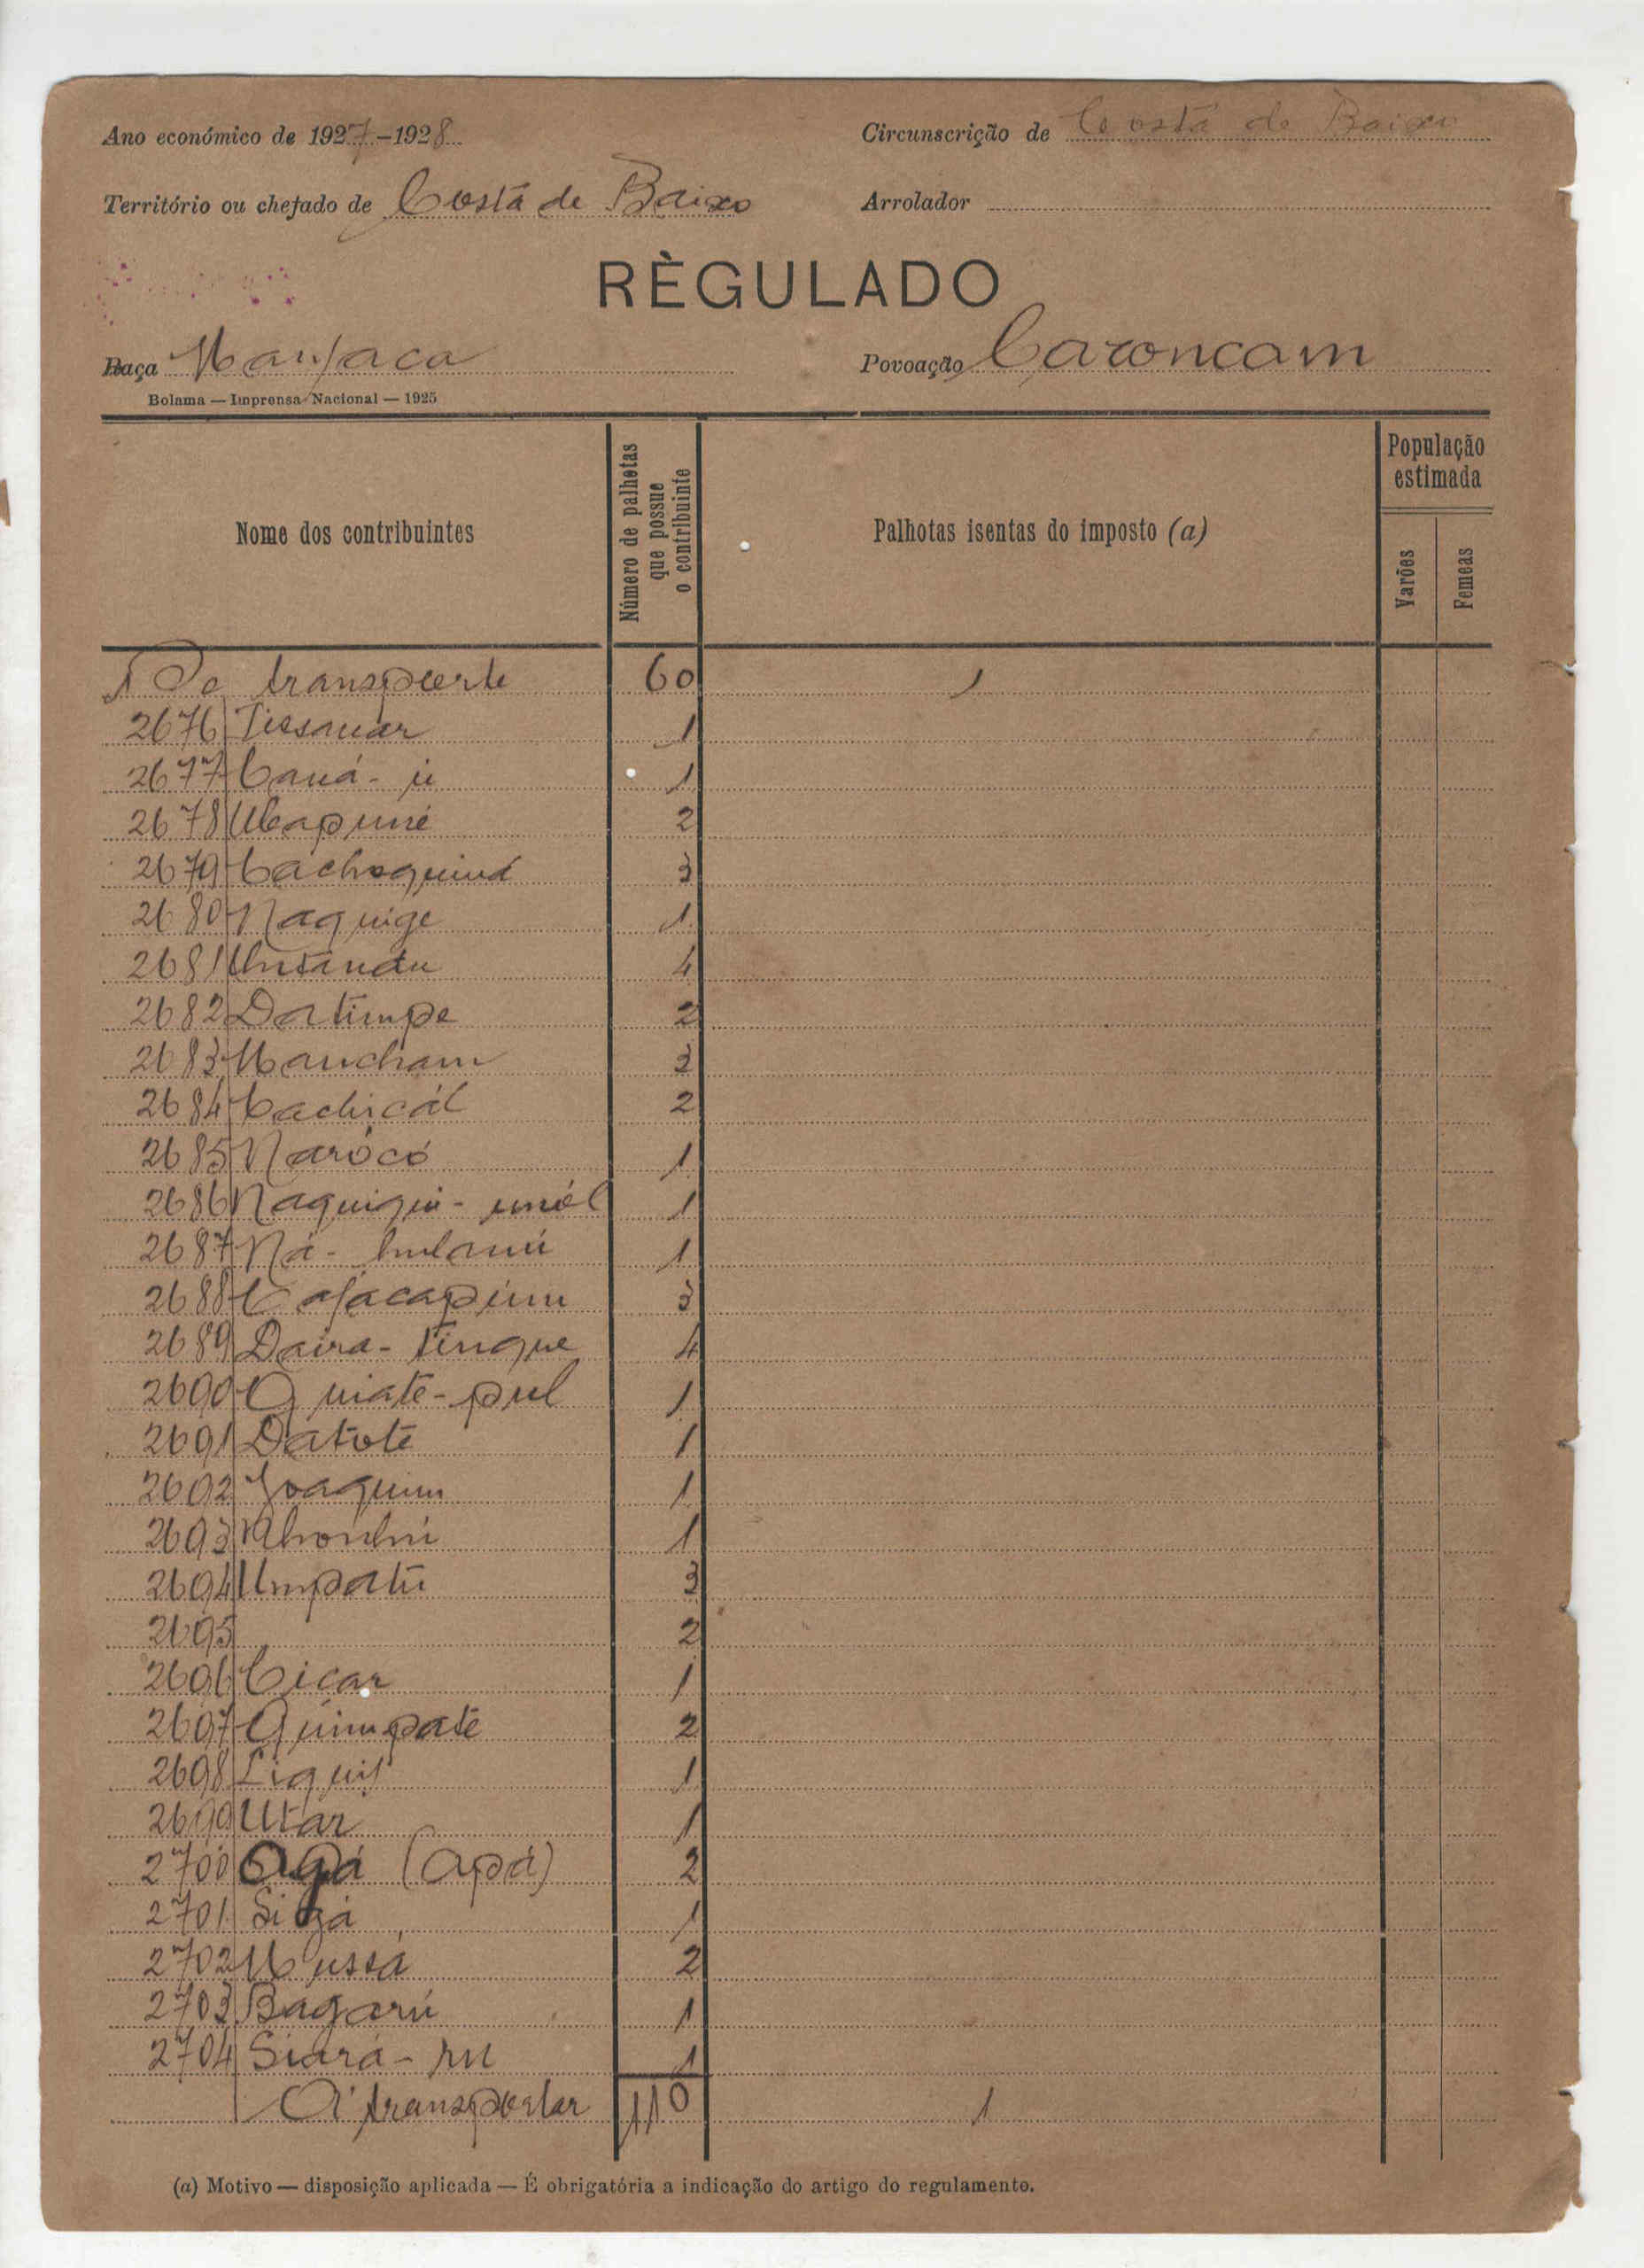 Ano económico de 1927-1928 Circunscrição de Costa de Baixo
Território ou chefado de Costa de Baixo Arrolador
RÈGULADO
Raça Manjaca Povoação Caroncam
Bolama — Imprensa Nacional — 1925
Nome dos contribuintes
Número de palhotas que possue o contribuinte
Palhotas isentas do imposto (a)
População estimada
Varões
Femeas
De transporte 60 1
2676 Tissanar 1
2677 Caná-ú 1
2678 Ucapuné 2
2679 Cachoquiná 3
2680 Naquige 1
2681 4
2682 Datimpe 2
2683 Mancham 3
2684 Cachicál 2
2685 Narócó 1
2686 1
2687 Ná- 1
2688 Cajacapim 3
2689 Daira-tinque 4
2690 Quiate-pul 1
2691 Datoté 1
2692 Joaquim 1
2693 1
2694 Umpatú 3
2695 2
2696 Cicar 1
2697 Quimpaté 2
2698 Liquil 1
2699 Utar 1
2700 Apá (Apá) 2
2701 1
2702 Mussá 2
2703 Bagarú 1
2704 Siará-ru 1
A transportar 110 1
(a) Motivo — disposição aplicada — É obrigatória a indicação do artigo do regulamento.